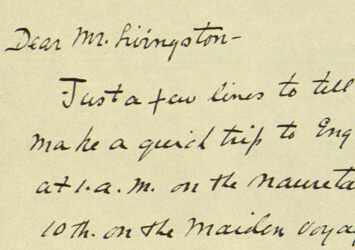 Dear Mr. Livingston -
Just a few lines to tell
make a quick trip to Eng
at 1. a. m. on the Maureta
10th. on the Maiden Voya